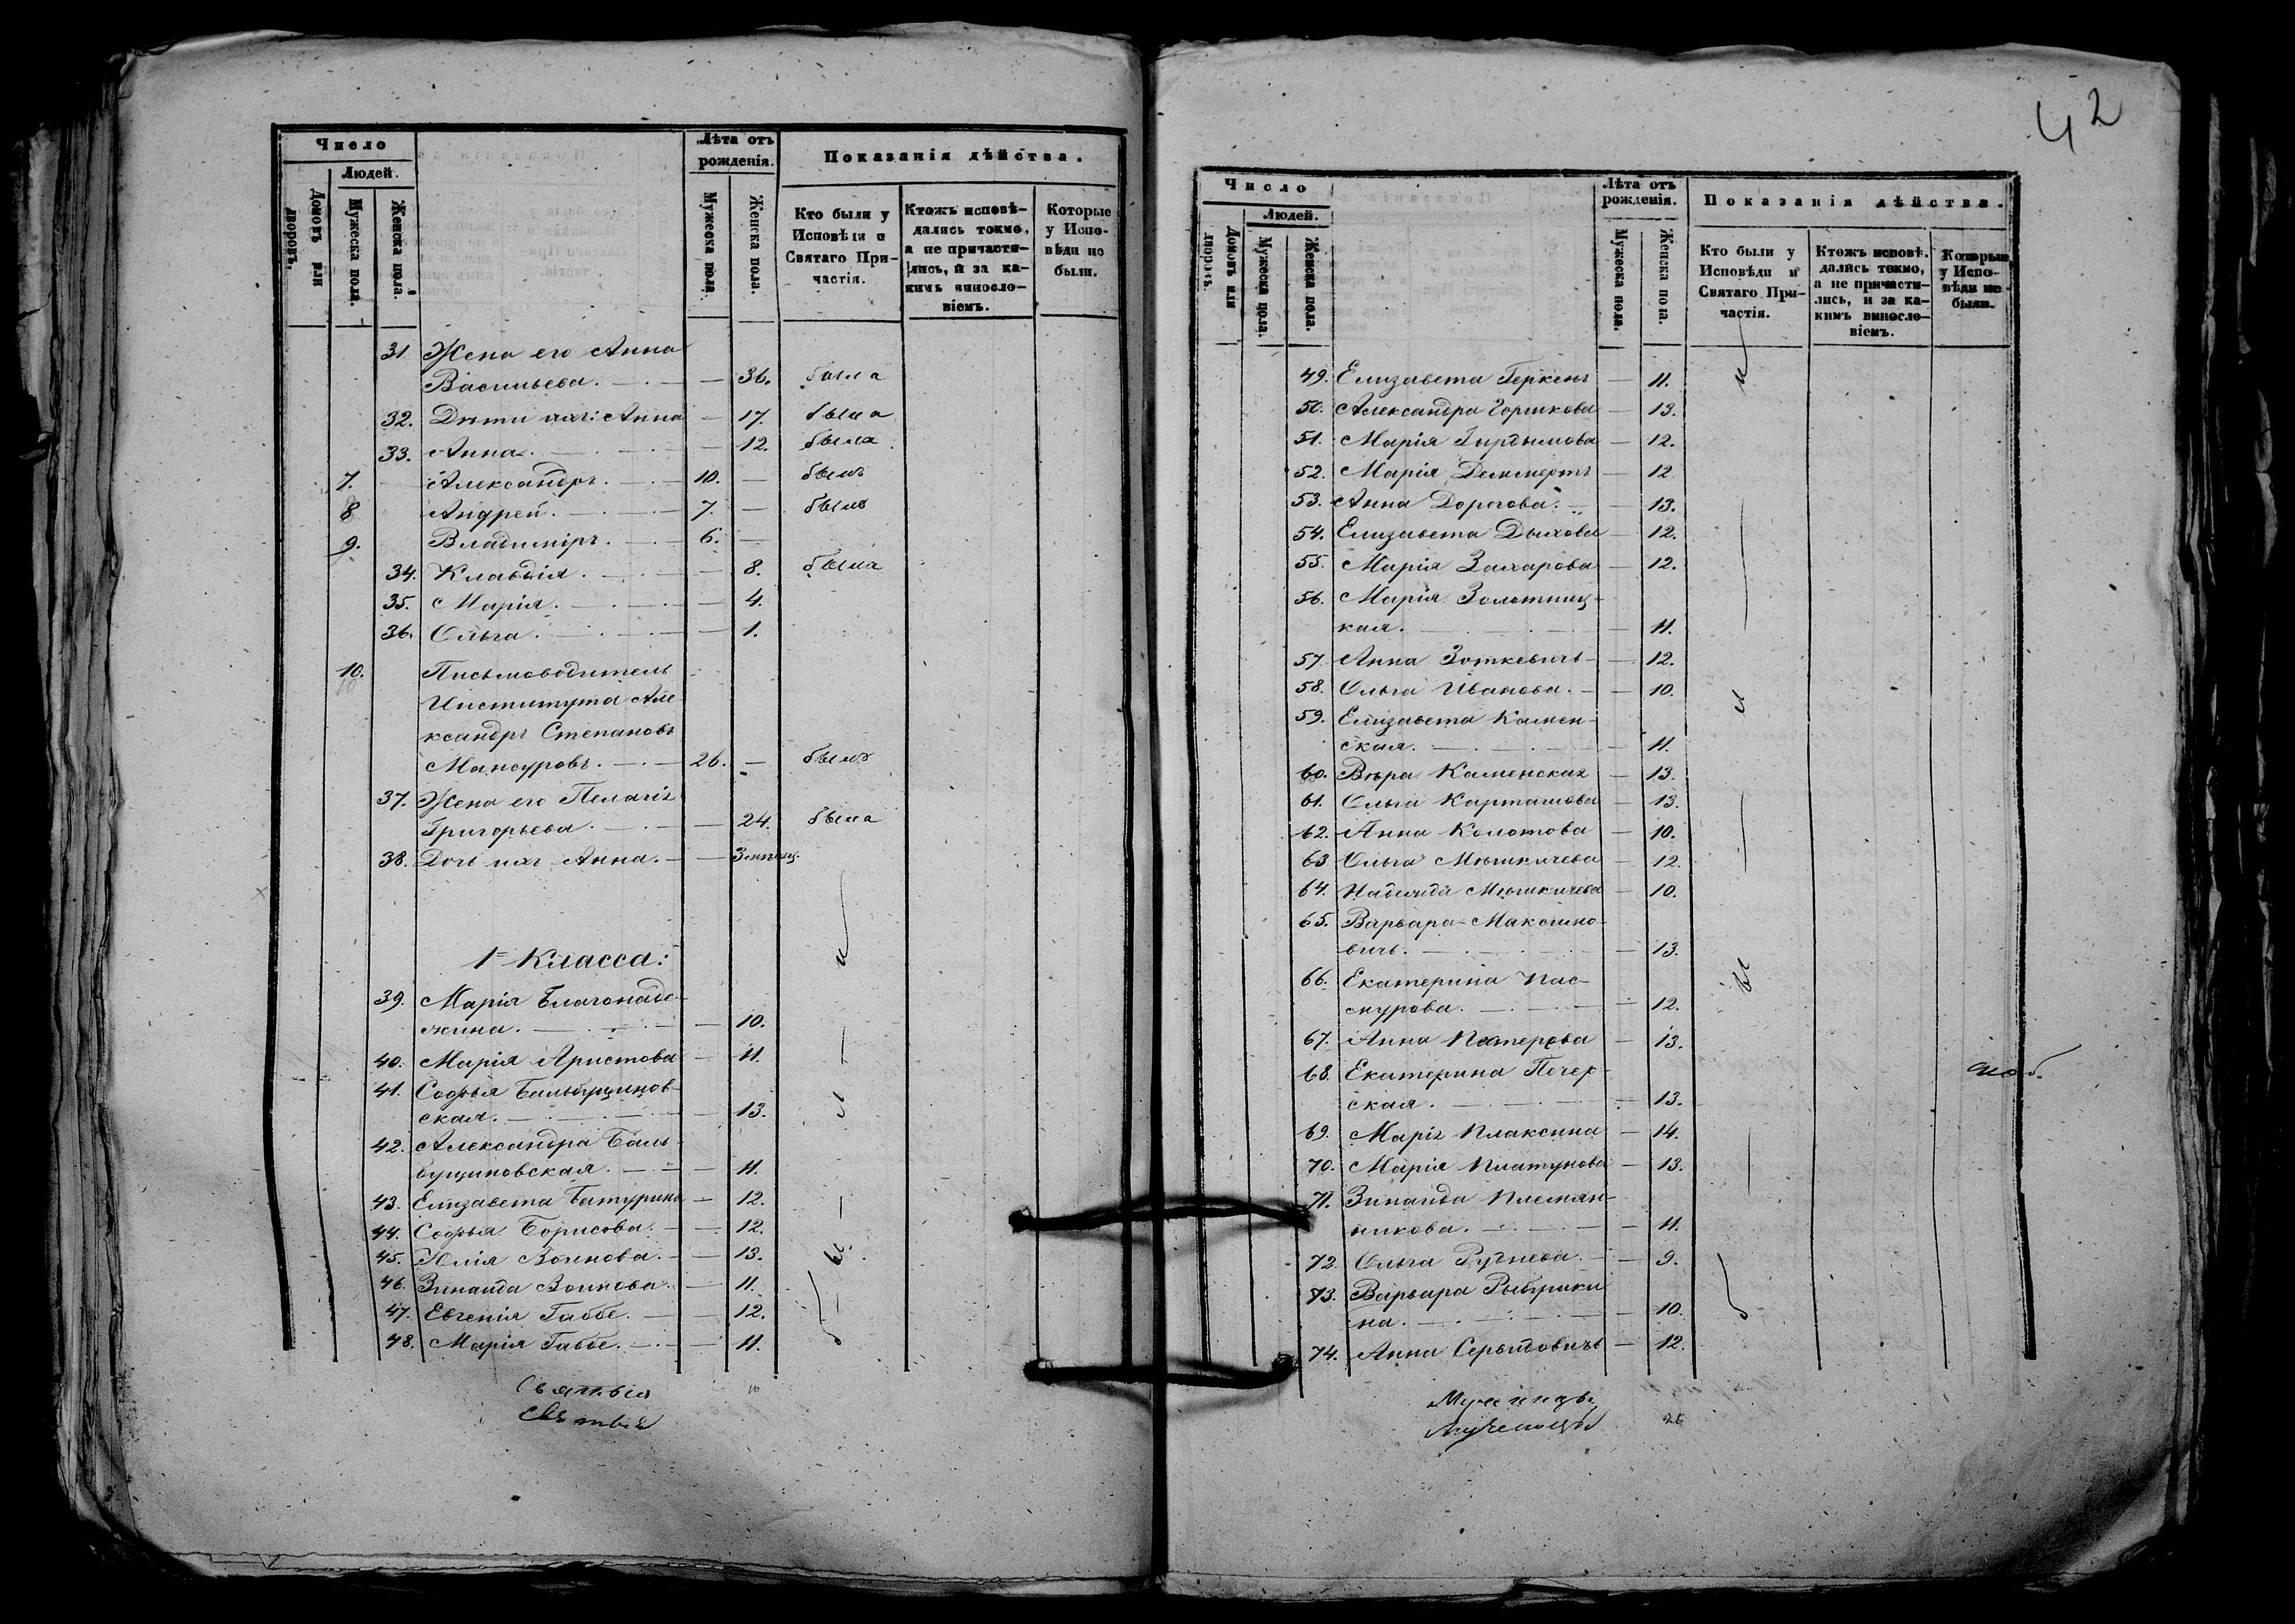 Число
Людей.
Домовъ или дворовъ.
Мужеска пола.
Женска пола.
Лѣта отъ рожденія.
Мужеска пола.
Женска пола.
Показанія дѣйства.
Кто были у
Исповѣди и
Святаго При-
частія.
Ктожъ исповѣ-
дались токмо,
а не причасти-
лись, и за ка-
кимъ виносло-
віемъ.
Которые
у Испо-
вѣди не
были.
31. Жена его Анна
Васильева. — 36. была
32. Дѣти ихъ: Анна — 17. была
33. Анна. — 12. была
7. Александръ. — 10. — былъ
8 Андрей. — 7. — былъ
9. Владиміръ. — 6. —
34. Клавдія. — 8. была
35. Марія. — 4.
36. Ольга. — 1.
10. Письмоводитель
Института Але
ксандръ Степановъ
Мансуровъ. — 26. — былъ
37. Жена его Пелагія
Григорьева. — 24. была
38. Дочь ихъ Анна. —
1 Класса:
39. Марія Благонаде-
жина. — 10.
40. Марія Аристова — 11.
41. Софья Бальбуциновская. — 13.
42. Александра Баль-
буциновская. — 11.
43. Елизавета Батурина — 12.
44. Софья Борисова. — 12.
45. Юлія Воинова. — 13.
46. Зинаида Воинова. — 11.
47. Евгенія Габбе. — 12.
48. Марія Габбе. — 11.
б — ы — л — и
Святыя
Святыя
42
Число
Людей.
Домовъ или дворовъ.
Мужеска пола.
Женска пола.
Лѣта отъ
рожденія.
Мужеска пола.
Женска пола.
Показанія дѣйства.
Кто были у
Исповѣди и
Святаго При-
частія.
Ктожъ исповѣ-
дались токмо,
а не причасти-
лись, и за ка-
кимъ винесло-
віемъ.
Которые
у Испо-
вѣди не
были.
49. Елизавета Геркенъ — 11.
50. Александра Горшкова — 13.
51. Марія Гирдымова — 12.
52. Марія — 12
53. Анна Дорогова. — 13.
54. Елизавета Дьихова — 12.
55. Марія Захарова — 12.
56. Марія Золотниц-
кая. — 11.
57. Анна Зоткевичъ — 12.
58. Ольга Иванова. — 10.
59. Елизавета Камен-
ская. — 11.
60. Вѣра Каменская — 13.
61. Ольга Карташова — 13.
62. Анна Колотова — 10.
63 Ольга Мышкичева — 12.
64. Надежда Мышкичева — 10.
65. Варвара Максимо-
вичъ. — 13.
66. Екатерина Пас-
мурова. — 12.
67. Анна Патерова — 13.
68. Екатерина Печер-
ская. — 13.
69. Марія Плаксина — 14.
70. Марія Платунова — 13.
71. Зинаида Племян-
никова. — 11.
72. Ольга Руднева. — 9.
73. Варвара Рыбушки
на. — 10.
74. Анна — 12.
б — ы — л — и
Мученицы
Мученицы
26